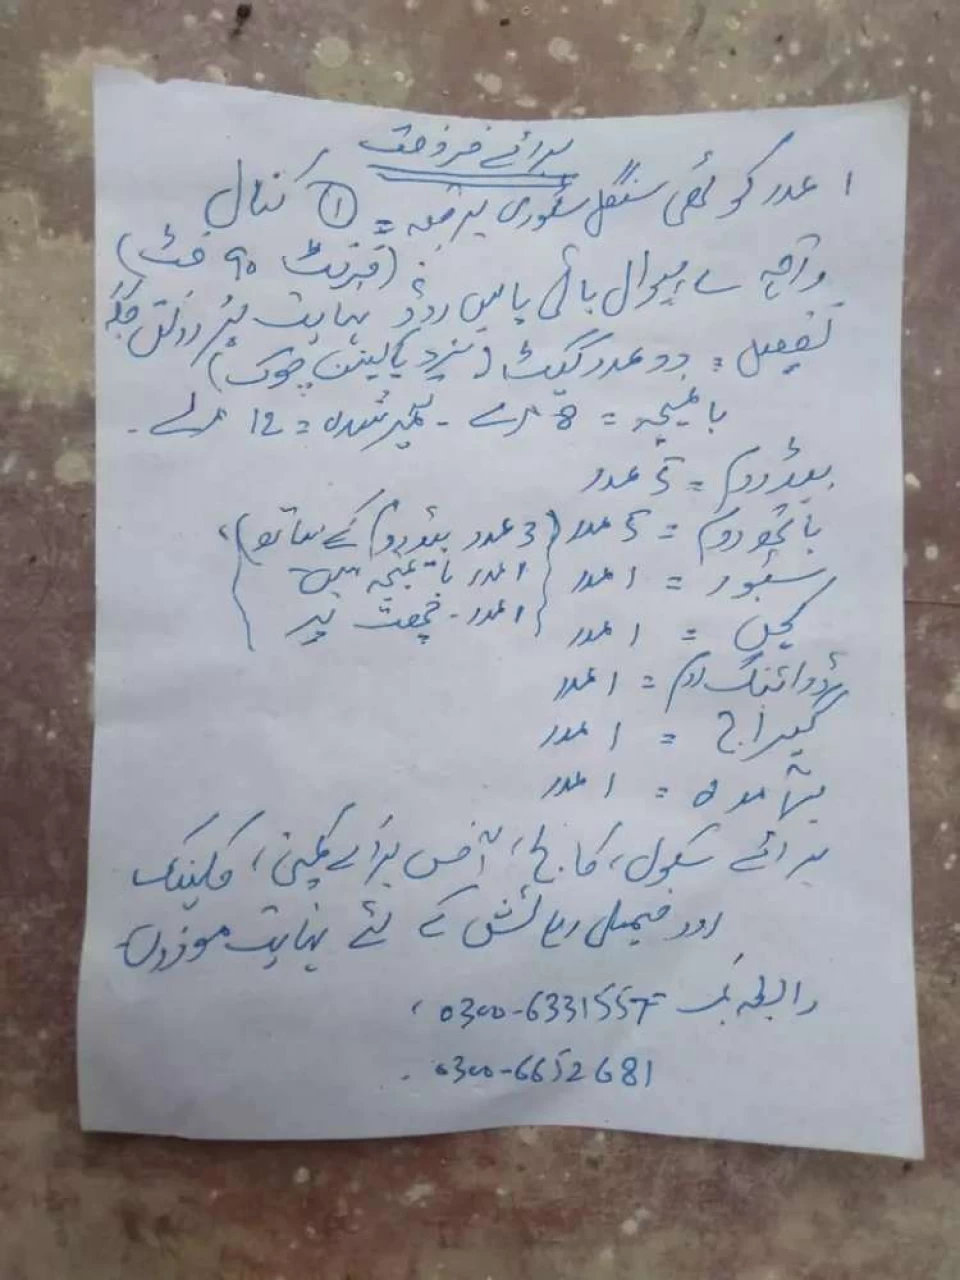 برائے فروخت
۱ عدد کوٹھی سنگل سٹوری برقبہ = ① کنال
(فرنٹ ۹۰ فٹ)
واقع ساہیوال بائی پاس روڈ نہایت پُر رونق جگہ
تفصیل = دو عدد گیٹ (نزد پاکپتن چوک)
باغیچہ = 8 مرلے - تعمیر شدہ = 12 مرلے -
بیڈ روم = 5 عدد
باتھ روم = 5 عدد (3 عدد بیڈ روم کے ساتھ)،
سٹور = ۱ عدد {۱ عدد باغیچہ میں
کچن = ۱ عدد ۱ عدد - چھت پر}
ڈرائنگ روم = ۱ عدد
گیراج = ۱ عدد
برآمدہ = ۱ عدد
برائے سکول، کالج، آفس برائے کمپنی، کلینک
اور فیملی رہائش کے لئے نہایت موزوں
رابطہ نمبر 0300-6331557،
0300-6652681